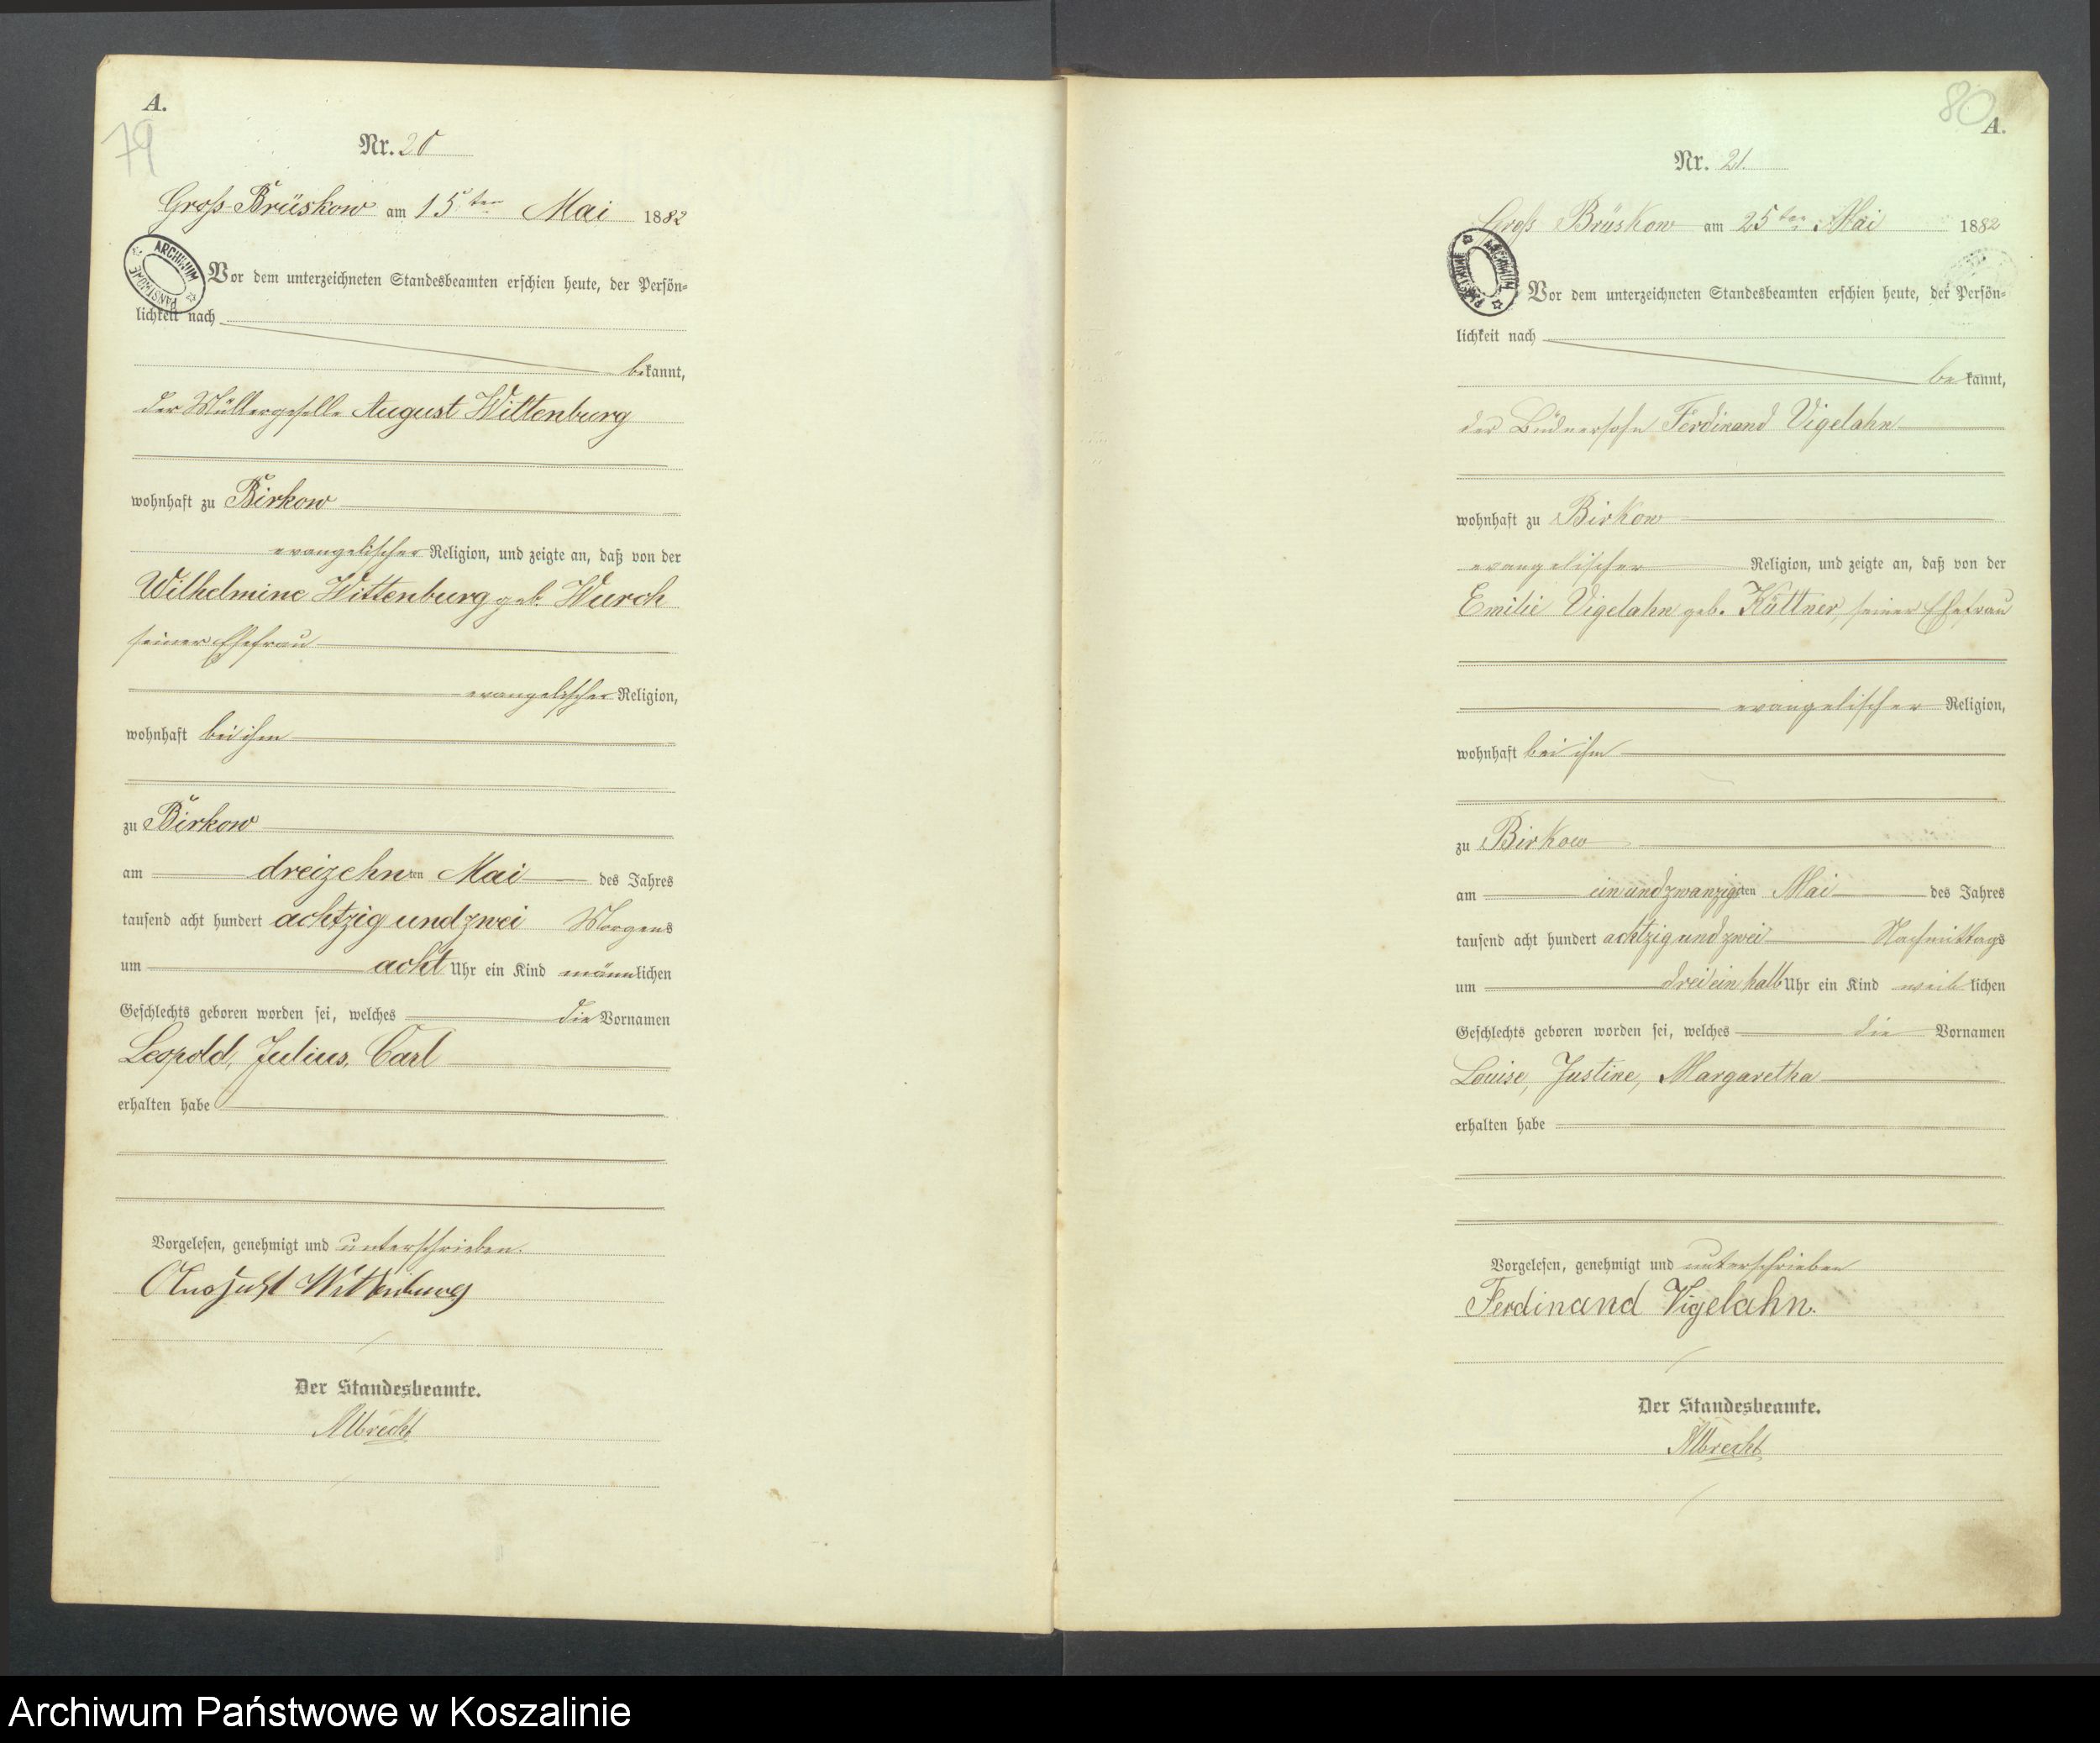 A.
79
Nr. 20
Groß-Brüskow am 15ten Mai 1882
ARCHIWUM PAŃSTWOWE
Vor dem unterzeichneten Standesbeamten erschien heute, der Persön-
lichkeit nach
bekannt,
der Müllergeselle August Wittenburg
wohnhaft zu Birkow
evangelischer Religion, und zeigte an, daß von der
Wilhelmine Wittenburg geb. Wurch
seiner Ehefrau
evangelischer Religion,
wohnhaft bei ihm
zu Birkow
am dreizehnten Mai des Jahres
tausend acht hundert achtzig und zwei Morgens
um acht Uhr ein Kind männlichen
Geschlechts geboren worden sei, welches die Vornamen
Leopold, Julius, Carl
erhalten habe
Vorgelesen, genehmigt und unterschrieben.
August Wittenburg
Der Standesbeamte.
Albrecht
80
A.
Nr. 21.
Groß Brüskow am 25ten Mai 1882
ARCHIWUM PAŃSTWOWE
Vor dem unterzeichneten Standesbeamten erschien heute, der Persön-
lichkeit nach
bekannt,
der Büdnersohn Ferdinand Vigelahn
wohnhaft zu Birkow
evangelischer Religion, und zeigte an, daß von der
Emilie Vigelahn geb. Küttner, seiner Ehefrau
evangelischer Religion,
wohnhaft bei ihm
zu Birkow
am ein und zwanzigsten Mai des Jahres
tausend acht hundert achtzig und zwei Nachmittags
um drei ein halb Uhr ein Kind weiblichen
Geschlechts geboren worden sei, welches die Vornamen
Louise, Justine, Margaretha
erhalten habe
Vorgelesen, genehmigt und unterschrieben
Ferdinand Vigelahn.
Der Standesbeamte.
Albrecht
Archiwum Państwowe w Koszalinie